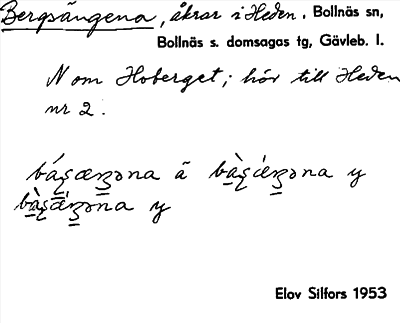 Bergsängena, åkrar i Heden. Bollnäs sn,
Bollnäs s. domsagas tg, Gävleb. l.
N om Hoberget; hör till Heden
nr 2.
ä y
y
Elov Silfors 1953